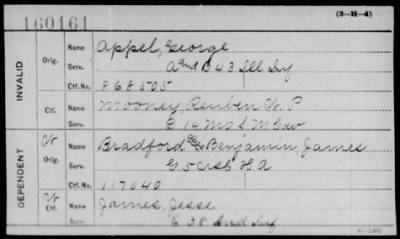 160161
(3-H-4)
INVALID
Orig.
Name Appel, George
Serv. A and B 43 Ill Inf
Ctf. No. 868505
Ctf.
Name Mooney, Reuben N. P
Serv. E 14 Mo S M Cav
DEPENDENT
W
Orig.
Name Bradford Benjamin, James
Serv. G 5 H A
Ctf. No. 117040
W
Ctf.
Name James, Jesse
Serv. E 38 Ind Inf